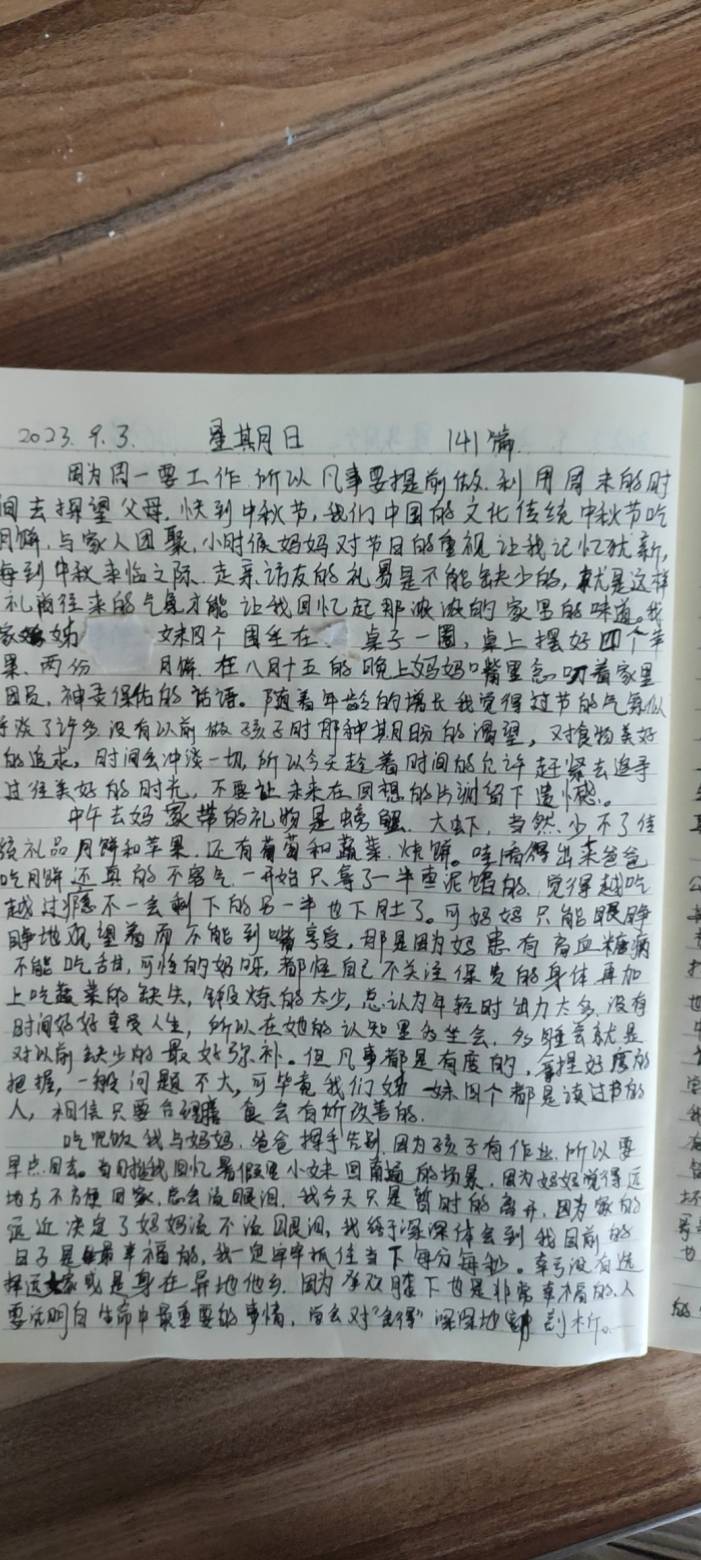 2023.9.3. 星期日 141篇
因为周一要工作.所以凡事要提前做.利用周末的时
间去探望父母.快到中秋节,我们中国的文化传统中秋节吃
月饼.与家人团聚.小时候妈妈对节日的重视让我记忆犹新,
每到中秋来临之际.走亲访友的礼是不能缺少的,就是这样
礼尚往来的气氛才能让我回忆起那浓浓的家里的味道。我
家姊 妹四个围坐在 桌子一圈,桌上摆好四个苹
果、两份 月饼.在八月十五的晚上妈妈嘴里念叨着家里
团员,神灵保佑的话语。随着年龄的增长我觉得过节的气氛似
乎淡了许多没有以前做孩子时那种期盼的渴望,对食物美好
的追求,时间会冲淡一切,所以今天趁着时间的允许赶紧去追寻
过往美好的时光,不要让未来在回想的片涧留下遗憾。
中午去妈家带的礼物是螃蟹.大虾,当然少不了佳
节礼品月饼和苹果.还有葡萄和蔬菜.烧饼。看得出来爸爸
吃月饼还真的不客气.一开始只拿了一半枣泥馅的.觉得越吃
越过瘾不一会剩下的另一半也下肚了。可妈妈只能眼睁
睁地观望着而不能到嘴享受,那是因为妈患有高血糖病
不能吃甜,可怜的妈呀,都怪自己不关注保贵的身体再加
上吃蔬菜的缺失,锻炼的太少,总认为年轻时出力太多.没有
时间好好享受人生,所以在她的认知里多坐会.多睡会就是
对以前缺少的最好弥补。但凡事都是有度的,拿捏好度的
把握,一般问题不大,可毕竟我们姊 妹四个都是读过书的
人,相信只要合理膳食会有所改善的.
吃完饭我与妈妈.爸爸挥手告别.因为孩子有作业.所以要
早点回去。当时我回忆暑假里小妹回南通的场景.因为妈妈觉得远
地方不方便回家.总会流眼泪.我今天只是暂时的离开,因为家的
远近决定了妈妈流不流眼泪,我终于深深体会到我目前的
日子是最幸福的,我一定牢牢抓住当下每分每秒。幸亏没有选
择远嫁或是身在异地他乡.因为承欢膝下也是非常幸福的.人
要活明白生命中最重要的事情,皆会对"舍得"深深地 剖析。